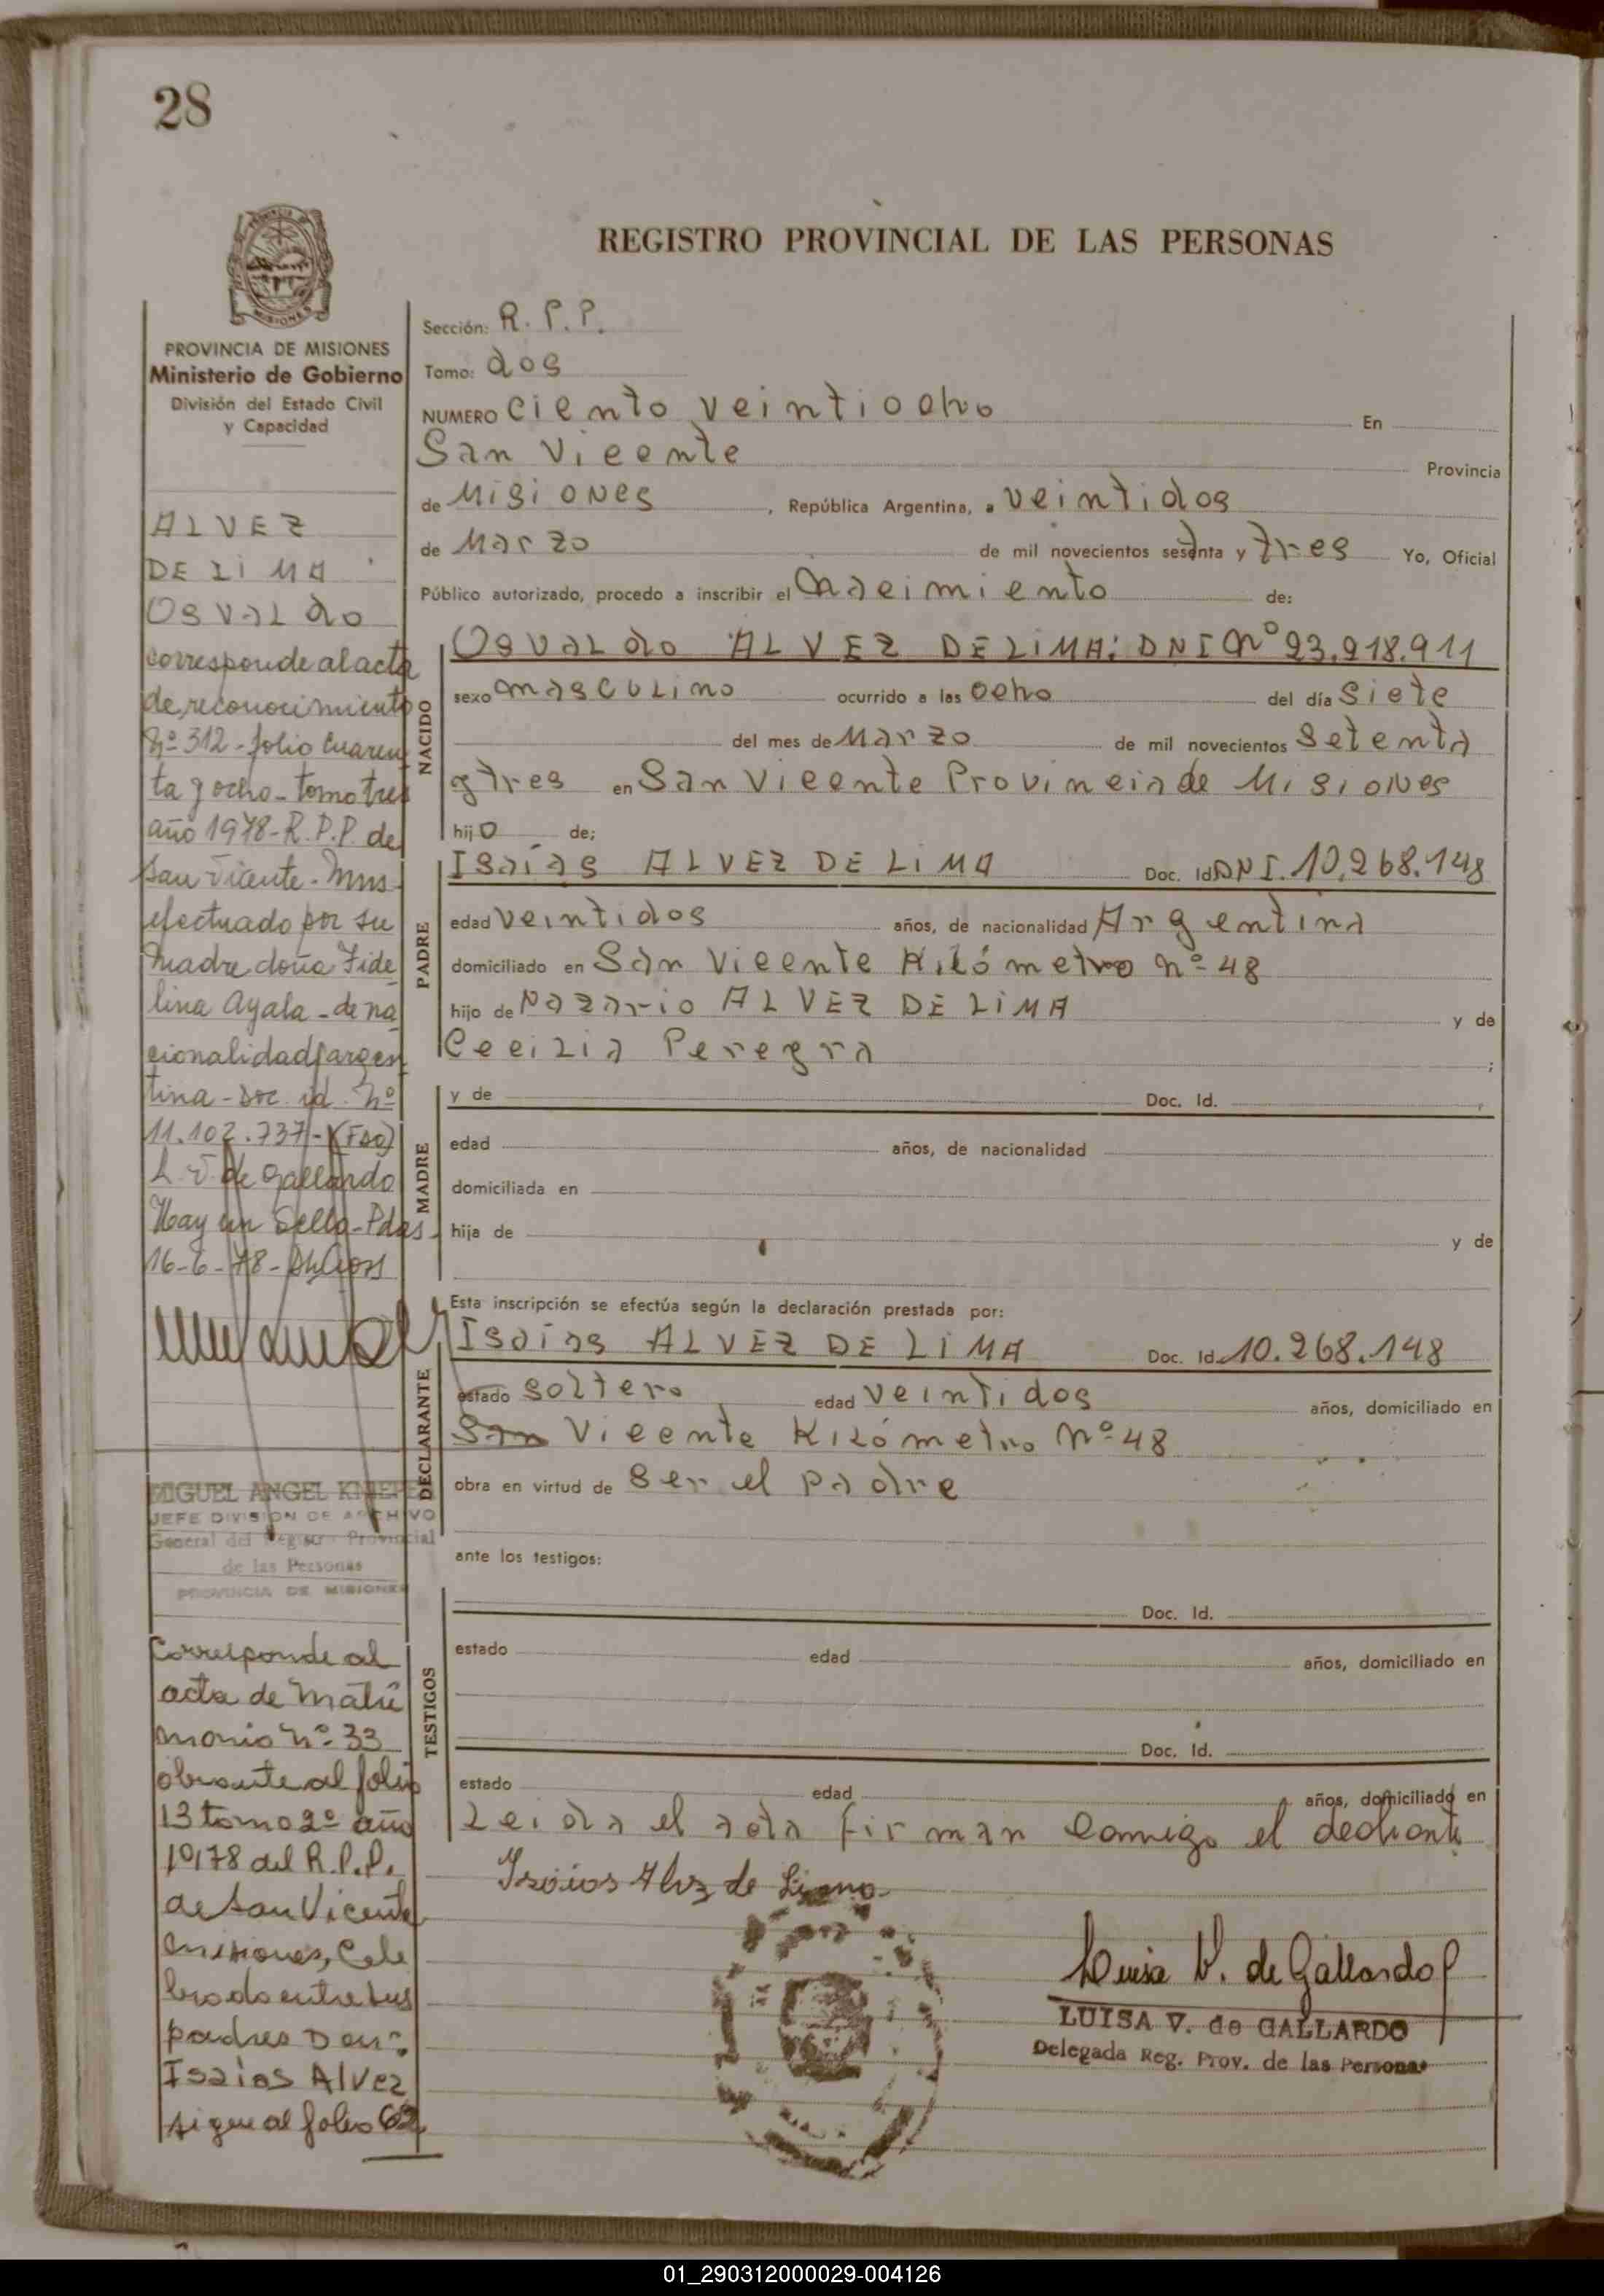 28
REGISTRO PROVINCIAL DE LAS PERSONAS
MISIONES
PROVINCIA DE MISIONES
Ministerio de Gobierno
División del Estado Civil
y Capacidad
ALVEZ
DE LIMA
OSVALDO
corresponde al acta
de reconocimiento
Nº 312 - folio cuaren
ta y ocho - tomo tres
año 1978 - R.P.P. de
San Vicente - Mnes
efectuado por su
madre doña Fide
lina Ayala - de na
cionalidad argen
tina - Doc. id. Nº
11.102.737 - (Fdo)
L. V. de Gallardo
Hay un Sello - Pdas
16-6-78 -
MIGUEL ANGEL
JEFE DIVISION DE ARCHIVO
General del Registro Provincial
de las Personas
PROVINCIA DE MISIONES
Corresponde al
acta de Matri
monio Nº 33
obrante al folio
13 tomo 2º año
1978 del R.P.P.
de San Vicente
Misiones, Cele
brado entre sus
padres Don:
Isaías Alvez
sigue al folio 62
Sección: R. P. P.
Tomo: dos
NUMERO Ciento veintiocho En
San Vicente Provincia
de Misiones, República Argentina, a veintidos
de Marzo de mil novecientos setenta y tres Yo, Oficial
Público autorizado, procedo a inscribir el Nacimiento de:
NACIDO
Osvaldo ALVEZ DE LIMA: DNI Nº 23.918.911
sexo masculino ocurrido a las ocho del día siete
del mes de Marzo de mil novecientos setenta
y tres en San Vicente Provincia de Misiones
hijo de;
PADRE
Isaías ALVEZ DE LIMA Doc. Id. DNI. 10.268.148
edad veintidos años, de nacionalidad Argentina
domiciliado en San Vicente Kilómetro nº 48
hijo de Nazario ALVEZ DE LIMA y de
Cecilia Peregra ;
MADRE
y de Doc. Id.
edad años, de nacionalidad
domiciliada en
hija de y de
Esta inscripción se efectúa según la declaración prestada por:
DECLARANTE
Isaías ALVEZ DE LIMA Doc. Id. 10.268.148
estado soltero edad veintidos años, domiciliado en
San Vicente Kilómetro Nº 48
obra en virtud de ser el padre
ante los testigos:
TESTIGOS
Doc. Id.
estado edad años, domiciliado en
Doc. Id.
estado edad años, domiciliado en
Leida el acta firman conmigo el
Isaías Alvz de Lima
Luisa V. de Gallardo
LUISA V. de GALLARDO
Delegada Reg. Prov. de las Personas
01_290312000029-004126